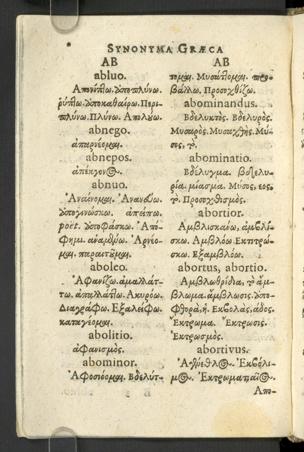 SYNONYMA GRÆCA
AB
abluo.
Ἀπονίπτω. ὑποπλύνω.
ρύπτω. ὑποκαθαίρω. Περι-
πλύνω. Πλύνω. Ἀπολούω.
abnego.
ἀπαρνέομαι.
abnepos.
ἀπέκγονος.
abnuo.
Ἀναίνομαι. Ἀνανεύω.
ὑπογινώσκω. ἀπείπω.
poet. ὑποφάσκω. Ἀπό-
φημι. Ἀρνέο-
μαι. παραιτοῦμαι.
aboleo.
Ἀφανίζω. ἀμαλάτ-
τω. ἀπαλλάττω. Ἀκυρόω.
Διαγράφω. Ἐξαλείφω.
abolitio.
ἀφανισμός.
abominor.
Ἀφοσιόομαι. Βδελύτ-
AB
τομαι. Μυσάττομαι. προ-
βάλλω. Προσοχθίζω.
abominandus.
Βδελυκτός. Βδελυρός.
Μυσαρός. Μυσαχθής. Μύ-
abominatio.
Βδέλυγμα. βδελυ-
ρία. μίασμα. Μύσος, εος,
τό. Προσοχθισμός.
abortior.
Ἀμβλισκαίνω, ἀμβλί-
σκω. Ἀμβλόω. Ἐκτιτρώ-
σκω. Ἐξαμβλόω.
abortus, abortio.
Ἀμβλωθρίδια, τό ἄμ-
βλωμα. ἀμβλωσις. ὑπο-
Φθορά, ἡ. Ἐκβολάς, άδος.
Ἔκτρωμα. Ἔκτρωσις.
Ἐκτρωσμός.
abortivus.
Ἐκβόλι-
μος. Ἐκτρωματιαῖος.
Ἀπο-